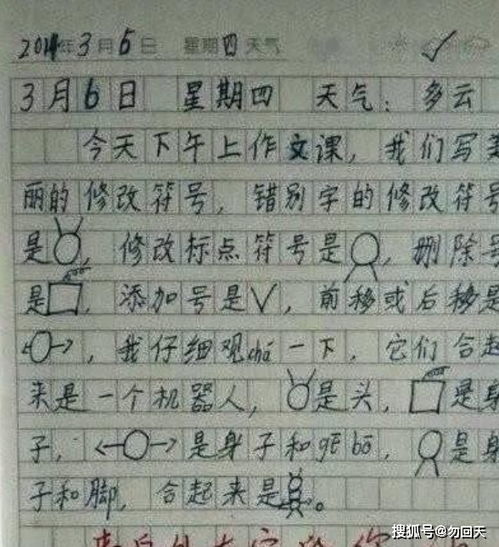 2014年3月6日 星期四 天气
3月6日 星期四 天气：多云
今天下午上作文课，我们写美
丽的修改符号，错别字的修改符号
是，修改标点符号是，删除号
是，添加号是∨，前移或后移是
←○→，我仔细观chá一下，它们合起
来是一个机器人，是头，是身
子，←○→是身子和gē bō，是身
子和脚，合起来是。
搜狐号@勿回天